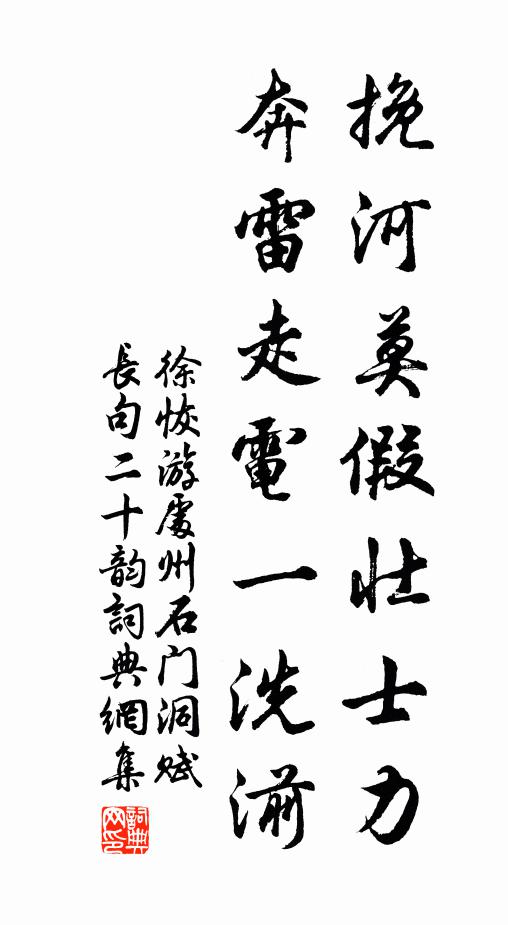 挽河莫假壮士力
奔雷走電一洗湔
徐恢游處州石门洞赋
長句二十韵詞典網集
詞典网印